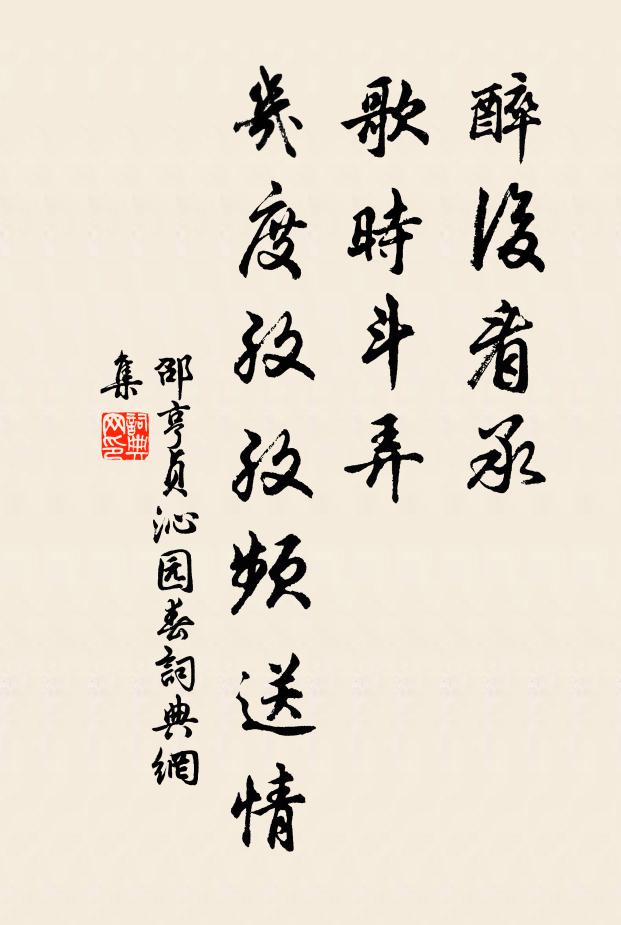 醉後看承
歌時斗弄
幾度孜孜頻送情
邵亨貞沁园春詞典網
集
詞典
网印